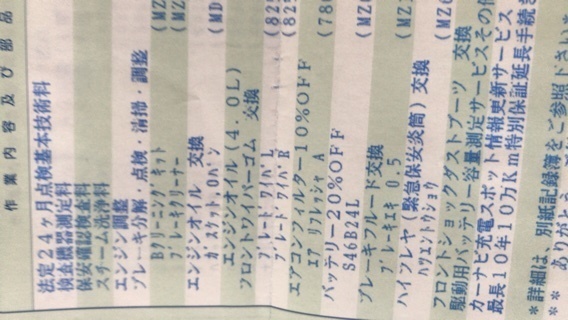 作業内容及び部品
法定24ヶ月点検基本技術料
検査機器測定料
保安確認検査料
スチーム洗浄料
エンジン調整
ブレーキ分解・点検・清掃・調整
Bクリーニングキット (MZ
ブレーキクリーナー (MZ
エンジンオイル 交換
ガスケット,Oパン (MD
エンジンオイル(4.0L)
フロントワイパーゴム 交換
ブレードワイパL (82
ブレードワイパR (82
エアコンフィルター10%OFF
エアリフレッシャA (78
バッテリー20%OFF
S46B24L (MZ
ブレーキフルード交換
ブレーキエキ 0.5 (MZ
ハイフレヤ(緊急保安炎筒)交換
ハツエントウショウ (MZ
フロントショックダストブーツ 交換
駆動用バッテリー容量測定サービスその他
カーナビ充電スポット情報更新サービス
最長10年10万Km特別保証延長手続き
*詳細は、別紙記録簿をご参照下さい*
** ありがとう